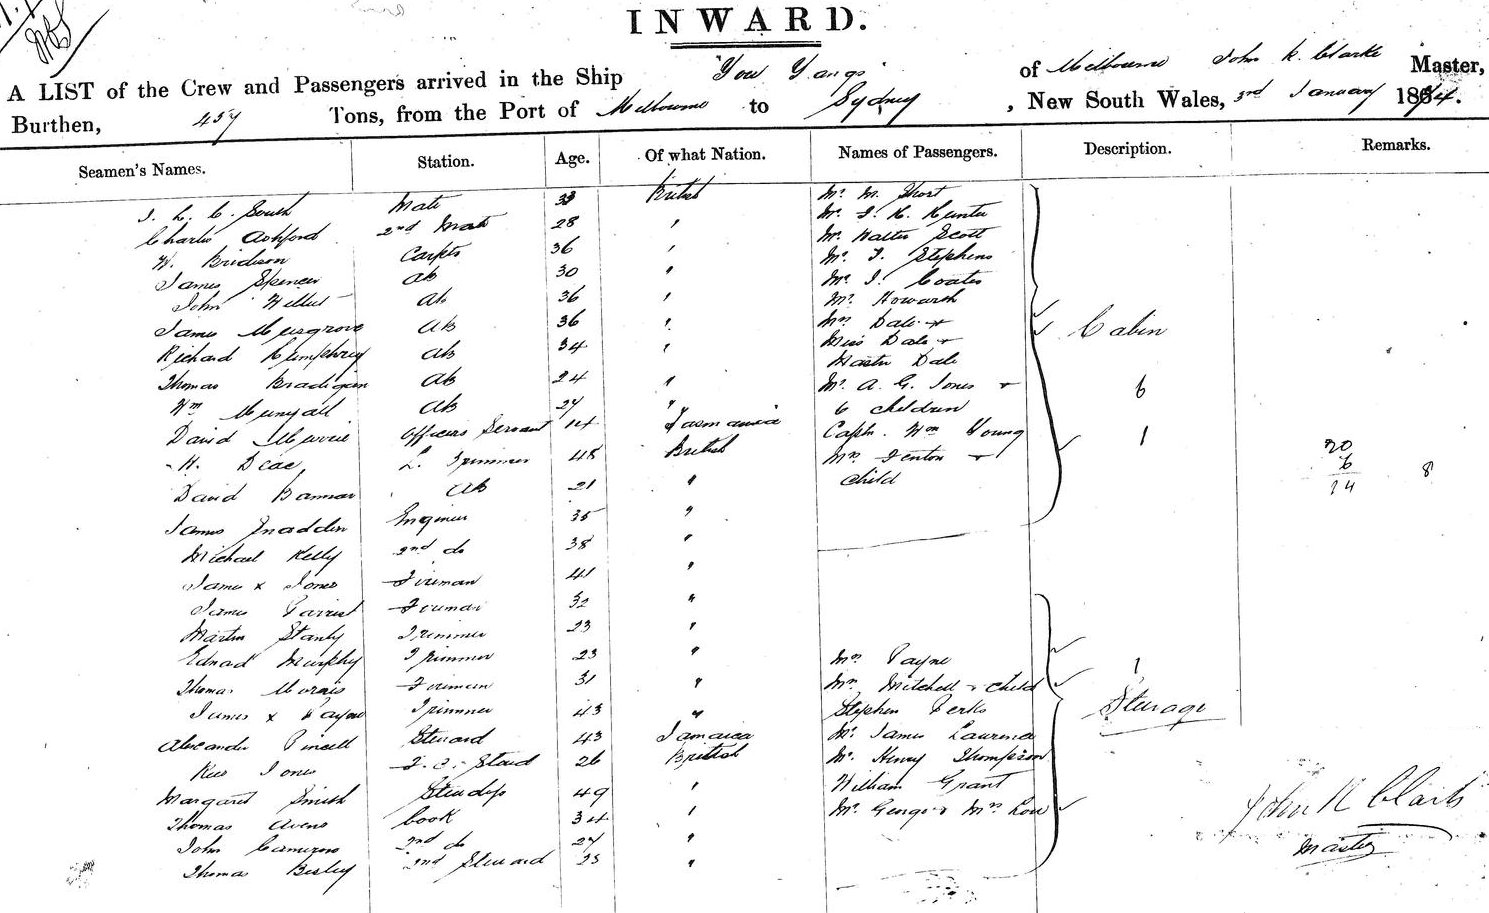 INWARD.
A LIST of the Crew and Passengers arrived in the Ship "You Yangs" of Melbourne John K. Clarke Master,
Burthen, 457 Tons, from the Port of Melbourne to Sydney, New South Wales, 3rd January 1874.
Seamen's Names. Station. Age. Of what Nation. Names of Passengers. Description. Remarks.
South Mate 33 British Mr. M. Short
Charles Ashford 2nd Mate 28 " Mr. Hunter
W. 36 " Mr. Walter Scott
James Spencer AB 30 " Mr. Stephens
John AB 36 " Mr. J. Coates
James Musgrove AB 36 " Mr. Howarth
Richard Humphrey AB 34 " Mrs Dale +
Thomas AB 24 " Miss Dale +
Wm AB 27 " Master Dale
David Officers Servant 14 Tasmania Mr. A. G. Jones +
H. Trimmer 48 British 6 children
David AB 21 " Captn. Wm Young
James Engineer 35 " Mrs Fenton +
Michael Kelly 2nd do 38 " child
James x Jones Fireman 41 "
James Fireman 32 "
Martin Stanly Trimmer 23 "
Edward Murphy Trimmer 23 " Mrs Payne
Thomas Morris Fireman 31 " Mrs Mitchell + child
James x Payne Trimmer 43 " Stephen Perks
Alexander Steward 43 Jamaica Mr. James Lawrence
Rees Jones 26 British Mr. Henry Thompson
Margaret Smith 49 " William Grant
Thomas Avens Cook 34 " Mr. George + Mrs Low
John Cameron 2nd do 27 "
Thomas Besley 2nd Steward 23 "
Cabin
6
1
20
6
8
1
Steerage
John K Clark
Master